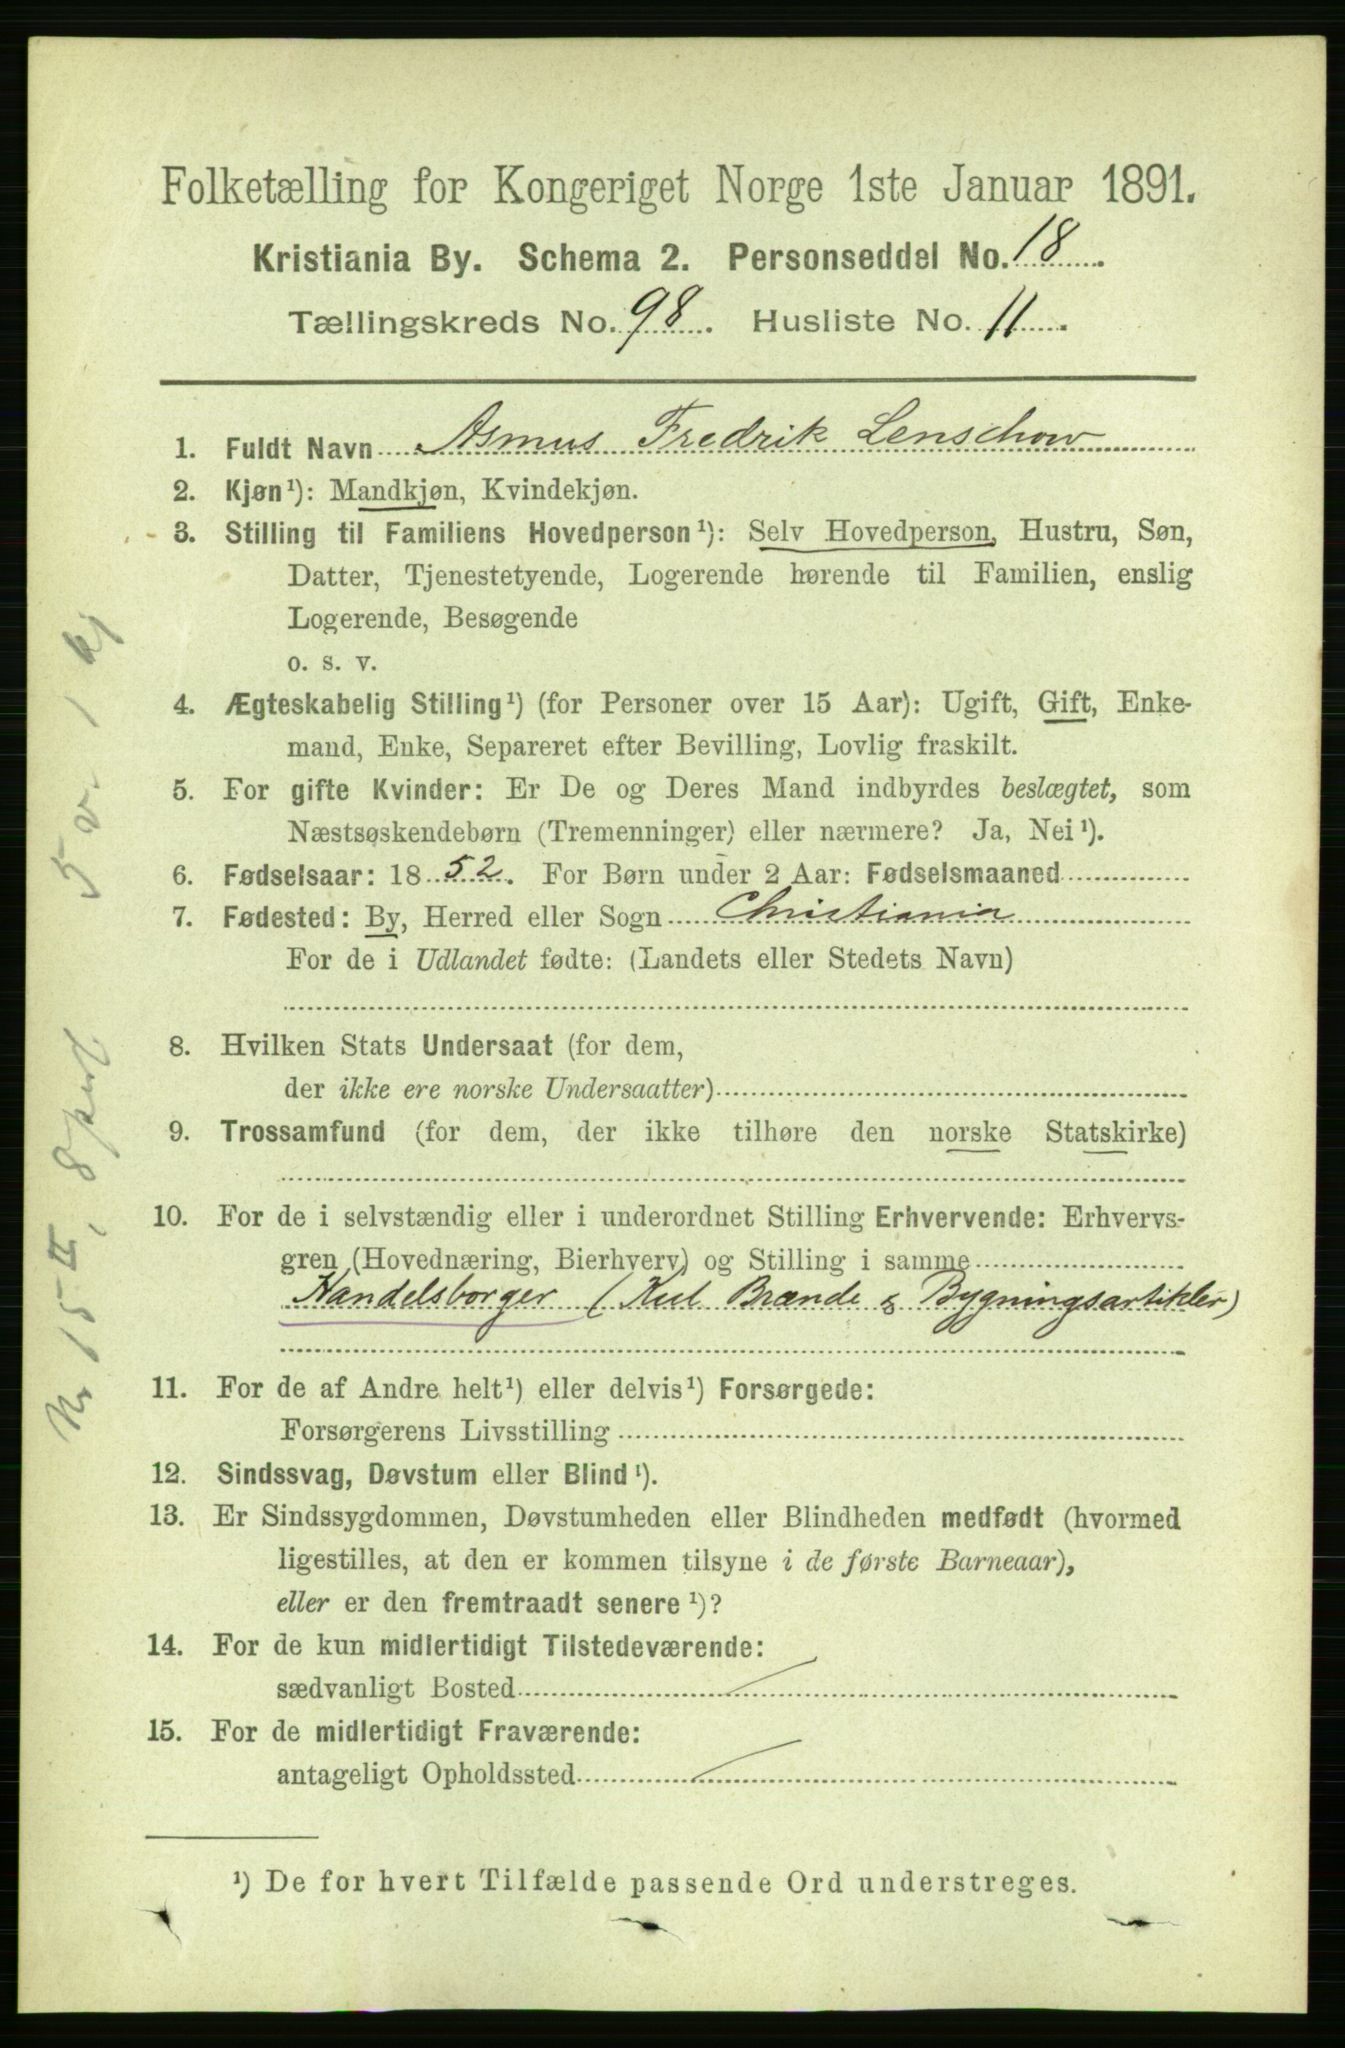 Folketælling for Kongeriget Norge 1ste Januar 1891.
Kristiania By. Schema 2. Personseddel No. 18.
Tællingskreds No. 98. Husliste No. 11.
1. Fuldt Navn Asmus Fredrik Lenschow
2. Kjøn¹): Mandkjøn, Kvindekjøn.
3. Stilling til Familiens Hovedperson¹): Selv Hovedperson, Hustru, Søn,
Datter, Tjenestetyende, Logerende hørende til Familien, enslig
Logerende, Besøgende
o. s. v.
4. Ægteskabelig Stilling¹) (for Personer over 15 Aar): Ugift, Gift, Enke-
mand, Enke, Separeret efter Bevilling, Lovlig fraskilt.
5. For gifte Kvinder: Er De og Deres Mand indbyrdes beslægtet, som
Næstsøskendebørn (Tremenninger) eller nærmere? Ja, Nei¹).
6. Fødselsaar: 1852. For Børn under 2 Aar: Fødselsmaaned
7. Fødested: By, Herred eller Sogn Christiania
For de i Udlandet fødte: (Landets eller Stedets Navn)
8. Hvilken Stats Undersaat (for dem,
der ikke ere norske Undersaatter)
9. Trossamfund (for dem, der ikke tilhøre den norske Statskirke)
10. For de i selvstændig eller i underordnet Stilling Erhvervende: Erhvervs-
gren (Hovednæring, Bierhverv) og Stilling i samme
Handelsborger (Kul Brænde & Bygningsartikler)
11. For de af Andre helt¹) eller delvis¹) Forsørgede:
Forsørgerens Livsstilling
12. Sindssvag, Døvstum eller Blind¹).
13. Er Sindssygdommen, Døvstumheden eller Blindheden medfødt (hvormed
ligestilles, at den er kommen tilsyne i de første Barneaar),
eller er den fremtraadt senere¹)?
14. For de kun midlertidigt Tilstedeværende:
sædvanligt Bosted
15. For de midlertidigt Fraværende:
antageligt Opholdssted
¹) De for hvert Tilfælde passende Ord understreges.
Nr 15 II, 8 pers. 5 v. 1 kj